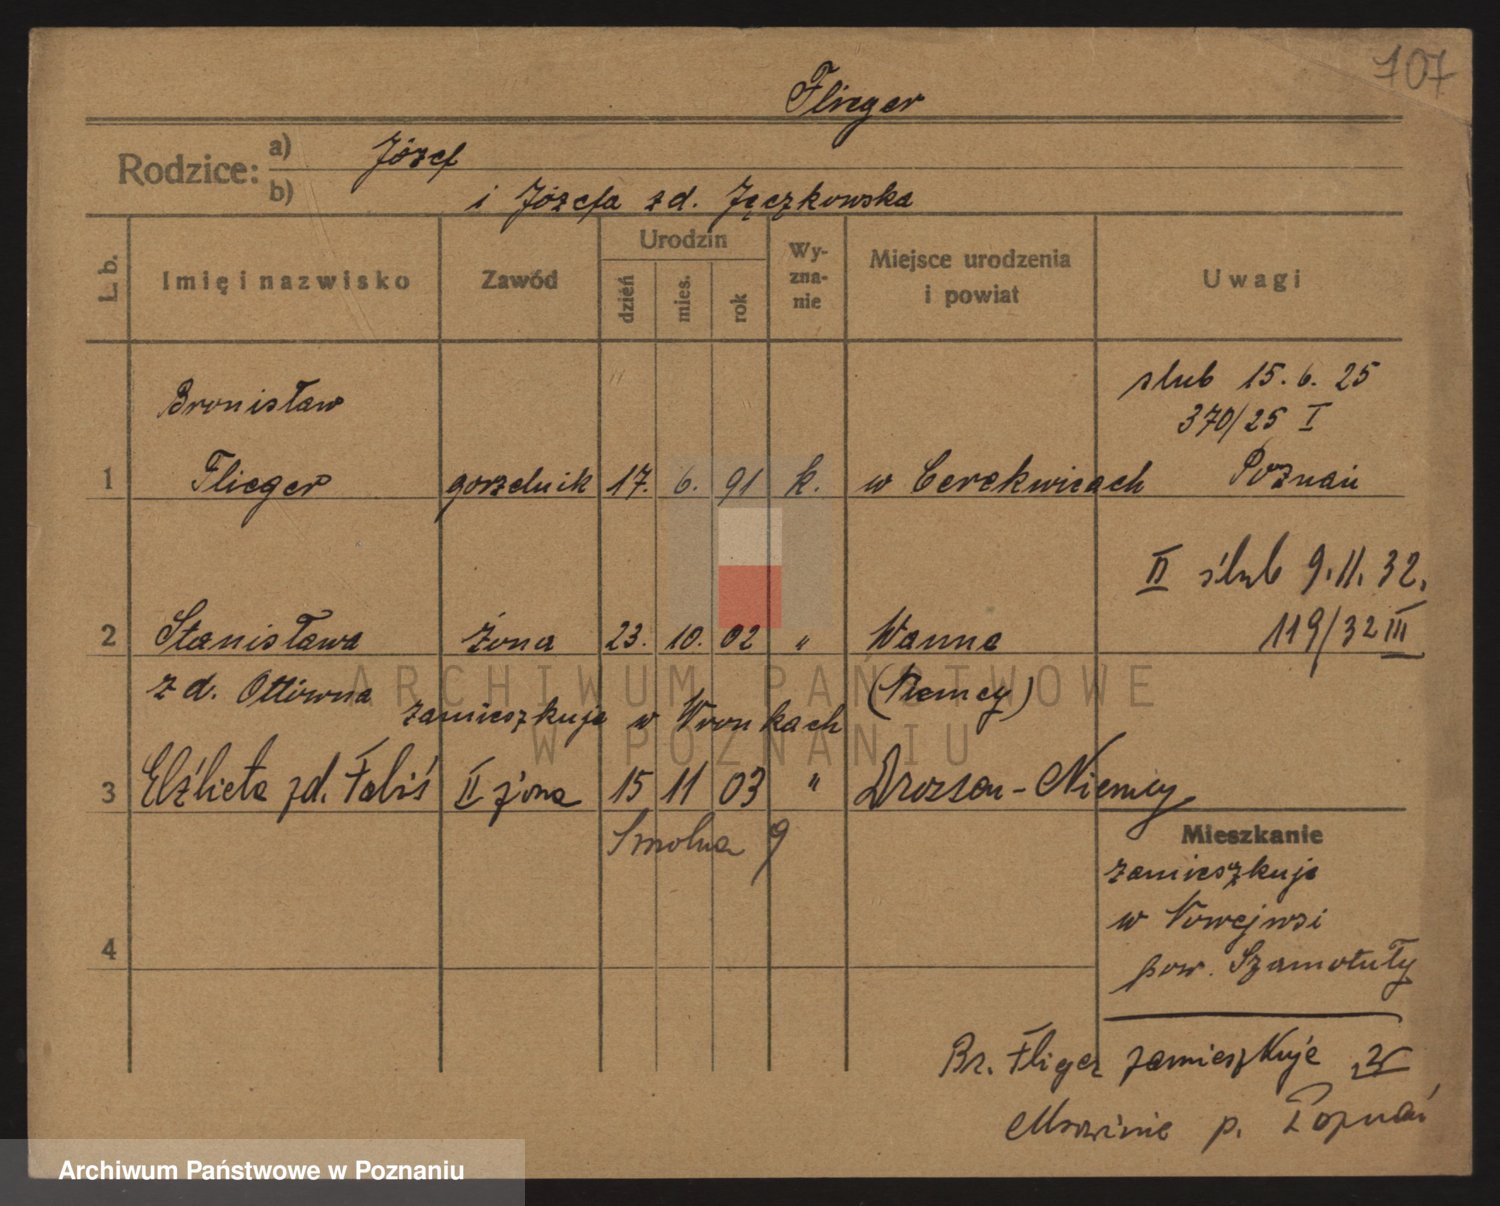 107
Flieger
Rodzice: a) Józef
b) i Józefa zd. Jęczkowska
L. b. Imię i nazwisko Zawód Urodzin dzień mies. rok Wyznanie Miejsce urodzenia i powiat Uwagi
Bronisław
ślub 15. 6. 25
370/25 I
1 Flieger gorzelnik 17. 6. 91 k. w Cerekwicach Poznań
II ślub 9. 11. 32.
119/32 III
2 Stanisława żona 23. 10. 02 " Wanne
zd. Ottówna (Niemcy)
zamieszkuje w Wronkach
3 Elżbieta zd. Fabiś II żona 15 11 03 " - Niemcy
Smolna 9
Mieszkanie
zamieszkuje
w Nowejwsi
4
pow. Szamotuły
Br. Fliger zamieszkuje w
Mrowinie p. Poznań
ARCHIWUM PAŃSTWOWE
W POZNANIU
Archiwum Państwowe w Poznaniu